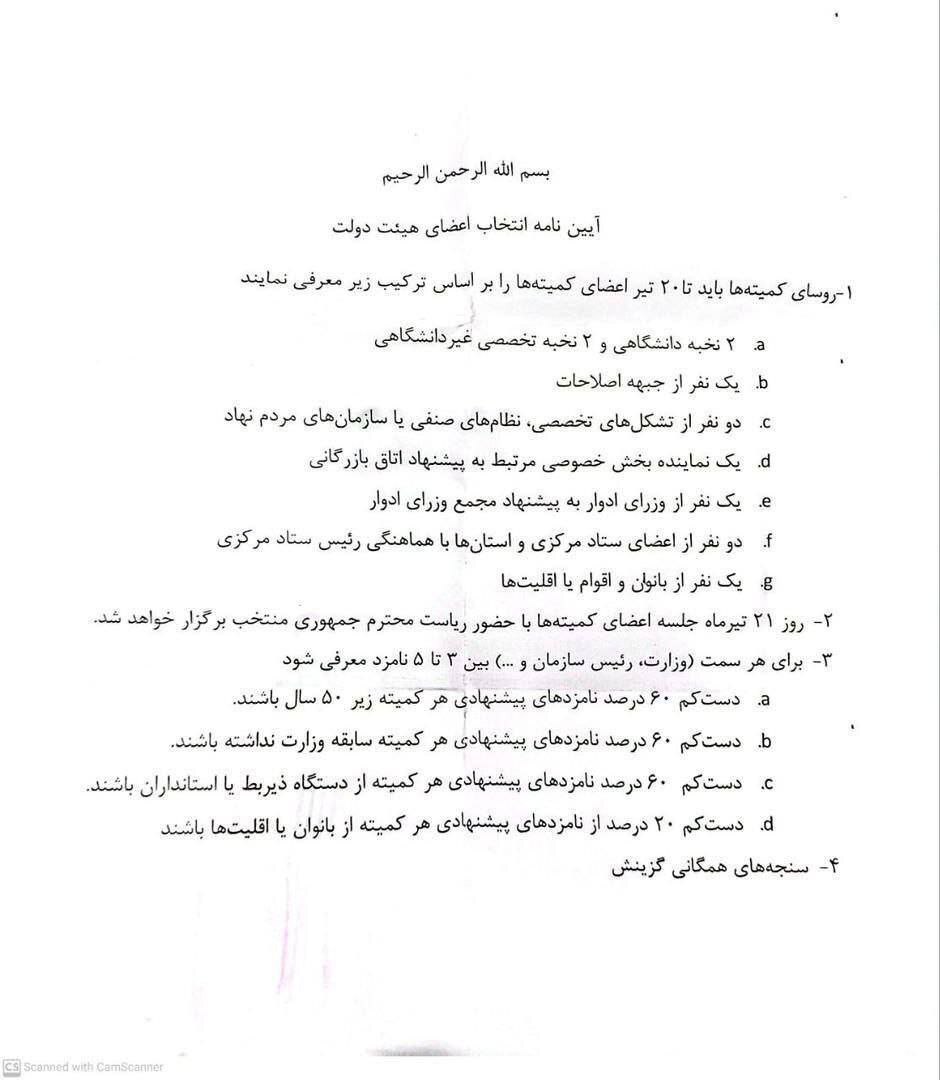 بسم الله الرحمن الرحیم
آیین نامه انتخاب اعضای هیئت دولت
۱-روسای کمیته‌ها باید تا۲۰ تیر اعضای کمیته‌ها را بر اساس ترکیب زیر معرفی نمایند
a. ۲ نخبه دانشگاهی و ۲ نخبه تخصصی غیردانشگاهی
b. یک نفر از جبهه اصلاحات
c. دو نفر از تشکل‌های تخصصی، نظام‌های صنفی یا سازمان‌های مردم نهاد
d. یک نماینده بخش خصوصی مرتبط به پیشنهاد اتاق بازرگانی
e. یک نفر از وزرای ادوار به پیشنهاد مجمع وزرای ادوار
f. دو نفر از اعضای ستاد مرکزی و استان‌ها با هماهنگی رئیس ستاد مرکزی
g. یک نفر از بانوان و اقوام یا اقلیت‌ها
۲- روز ۲۱ تیرماه جلسه اعضای کمیته‌ها با حضور ریاست محترم جمهوری منتخب برگزار خواهد شد.
۳- برای هر سمت (وزارت، رئیس سازمان و ...) بین ۳ تا ۵ نامزد معرفی شود
a. دست‌کم ۶۰ درصد نامزدهای پیشنهادی هر کمیته زیر ۵۰ سال باشند.
b. دست‌کم ۶۰ درصد نامزدهای پیشنهادی هر کمیته سابقه وزارت نداشته باشند.
c. دست‌کم ۶۰ درصد نامزدهای پیشنهادی هر کمیته از دستگاه ذیربط یا استانداران باشند.
d. دست‌کم ۲۰ درصد از نامزدهای پیشنهادی هر کمیته از بانوان یا اقلیت‌ها باشند
۴- سنجه‌های همگانی گزینش
CS Scanned with CamScanner